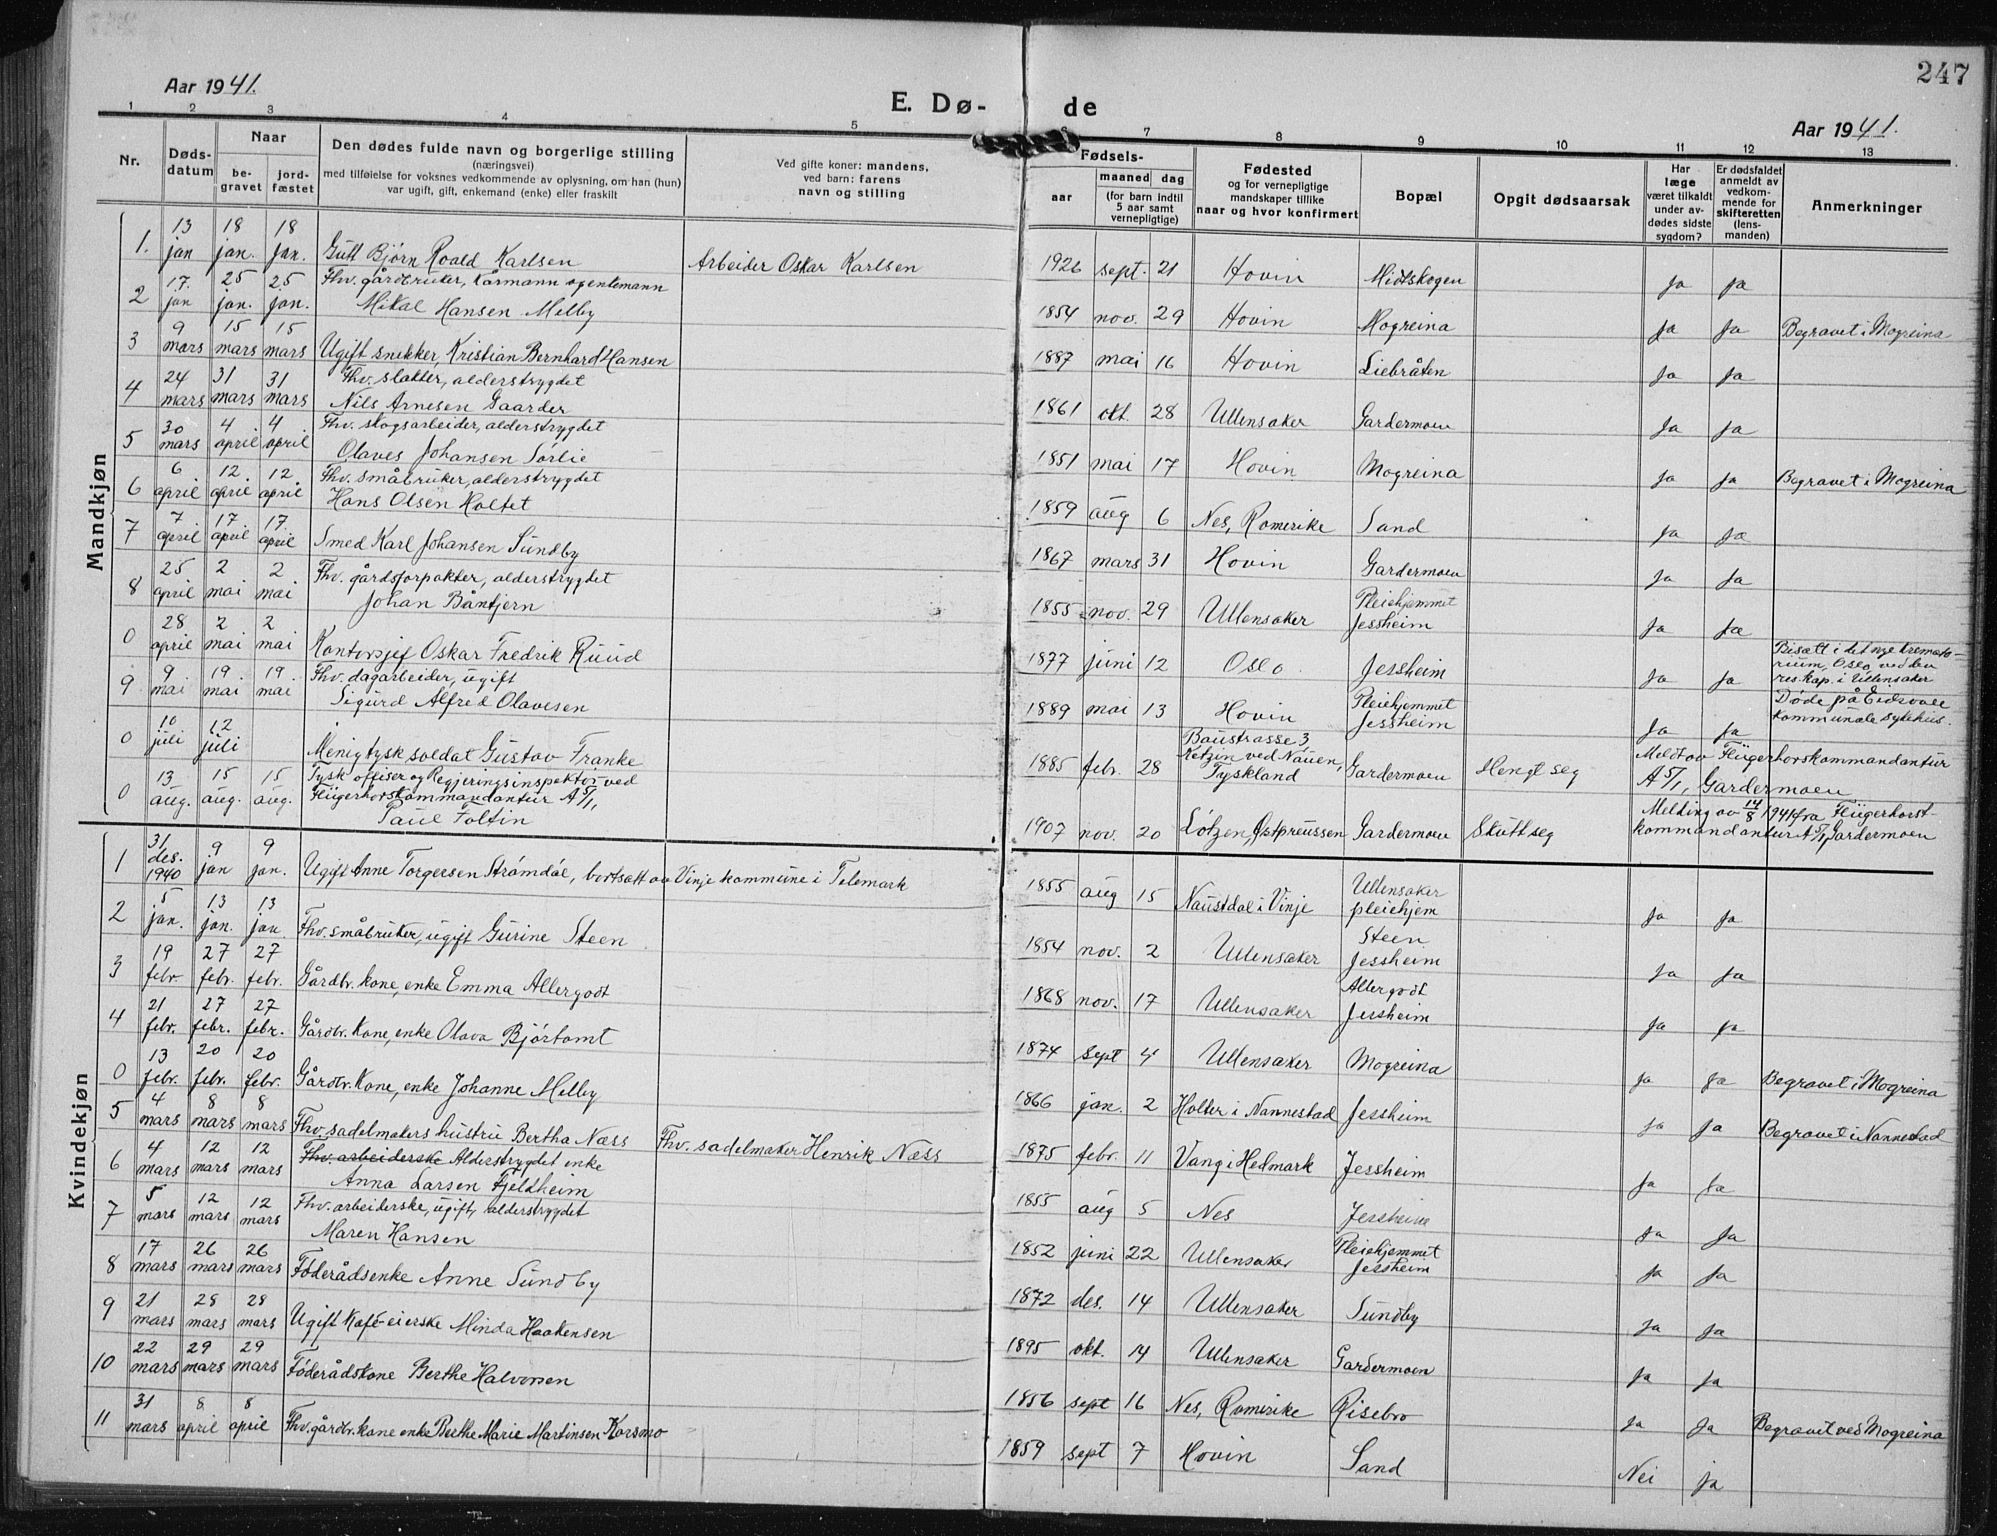 247
Aar 1941.
E. Dø- de
Aar 1941.
1 2 3 4 5 6 7 8 9 10 11 12 13
Nr.
Døds-
datum
Naar
be-
gravet
jord-
fæstet
Den dødes fulde navn og borgerlige stilling
(næringsvei)
med tilføielse for voksnes vedkommende av oplysning, om han (hun)
var ugift, gift, enkemand (enke) eller fraskilt
Ved gifte koner: mandens,
ved barn: farens
navn og stilling
Fødsels-
aar
maaned dag
(for barn indtil
5 aar samt
vernepligtige)
Fødested
og for vernepligtige
mandskaper tillike
naar og hvor konfirmert
Bopæl
Opgit dødsaarsak
Har
læge
været tilkaldt
under av-
dødes sidste
sygdom?
Er dødsfaldet
anmeldt av
vedkom-
mende for
skifteretten
(lens-
manden)
Anmerkninger
Mandkjøn
1. 13 jan 18 jan. 18 jan. Gutt Bjørn Roald Karlsen Arbeider Oskar Karlsen 1926 sept. 21 Hovin Midtskogen Ja Ja
2 17. jan 25 jan. 25 jan. Fhv. gårdbruker, kårmann og enkemann
Mikal Hansen Melby 1854 nov. 29 Hovin Mogreina Ja Ja Begravet i Mogreina
3 9 mars 15 mars 15 mars Ugift snekker, Kristian Bernhard Hansen 1887 mai 16 Hovin Liebråten Ja Ja
4 24 mars 31 mars 31 mars Fhv. slakter, alderstrygdet
Nils Arnesen Gaarder 1861 okt. 28 Ullensaker Gardermoen Ja Ja
5 30 mars 4 april 4 april Fhv. skogsarbeider, alderstrygdet
Olaves Johansen Sørlie 1851 mai 17 Hovin Mogreina Ja Ja Begravet i Mogreina
6 6 april 12 april 12 april Fhv. småbruker, alderstrygdet
Hans Olsen Holtet 1859 aug 6 Nes, Romerike Sand Ja Ja
7 7 april 17 april 17. april Smed Karl Johansen Sundby 1867 mars 31 Hovin Gardermoen Ja Ja
8 25 april 2 mai 2 mai Fhv. gårdsforpakter, alderstrygdet
Johan Båntjern 1855 nov. 29 Ullensaker Pleiehjemmet
Jessheim Ja Ja
0 28 april 2 mai 2 mai Kontorsjef Oskar Fredrik Ruud 1877 juni 12 Oslo Jessheim Ja Ja Bisatt i det nye kremato-
rium, Oslo, ved den
res. kap. i Ullensaker
9 9 mai 19 mai 19. mai Fhv. dagarbeider, ugift
Sigurd Alfred Olavesen 1889 mai 13 Hovin Pleiehjemmet
Jessheim Ja Ja Døde på Eidsvoll
kommunale sykehus.
0 10 juli 12 juli Menig tysk soldat Gustav Franke 1885 febr. 28 Baustrasse 3
Ketzin ved Nauen,
Tyskland Gardermoen Hengt seg Meldt av Flügerhorskommandantur
A 5/I, Gardermoen
0 13 aug. 15 aug. 15 aug. Tysk offiser og Regjeringsinspektor ved
Flügerhorskommandantur A 5/I,
Paul Foltin 1907 nov. 20 Lötzen, Ostpreussen Gardermoen Skutt seg Melding av 14/8 1941 fra Flügerhorst-
kommandantur A 5/I, Gardermoen
Kvindekjøn
1 31 des. 1940 9 jan 9 jan. Ugift Anne Torgersen Strømdal, bortsatt av Vinje kommune i Telemark 1855 aug 15 Naustdal i Vinje Ullensaker
pleiehjem Ja Ja
2 5 jan. 13 jan. 13 jan Fhv. småbruker, ugift Gurine Steen 1854 nov. 2 Ullensaker Steen
Jessheim Ja Ja
3 19 febr 27 febr. 27 febr. Gårdbr. kone, enke Emma Allergodt 1868 nov. 17 Ullensaker Allergodt
Jessheim Ja Ja
4 21 febr. 27 febr. 27 febr. Gårdbr. Kone, enke Olava Bjørtomt 1874 sept 4 Ullensaker Mogreina Ja Ja Begravet i Mogreina
0 13 febr. 20 febr. 20 febr. Gårdbr. Kone, enke Johanne Melby 1866 jan. 2 Holter i Nannestad Jessheim Ja Ja Begravet i Nannestad
5 4 mars 8 mars 8 mars Fhv. sadelmakers hustru Bertha Næss Fhv. sadelmaker Henrik Næss 1875 febr. 11 Vang i Hedmark Jessheim Ja Ja
6 4 mars 12 mars 12 mars Fhv. arbeiderske Alderstrygdet enke
Anna Larsen Fjeldheim 1855 aug 5 Nes Jessheim Ja Ja
7 5 mars 12 mars 12 mars Fhv. arbeiderske, ugift, alderstrygdet
Maren Hansen 1852 juni 22 Ullensaker Pleiehjemmet
Jessheim Ja Ja
8 17 mars 26 mars 26 mars Føderådsenke Anne Sundby 1872 des. 14 Ullensaker Sundby Ja Ja
9 21 mars 28 mars 28 mars Ugift Kafé-eierske Minda Haakensen 1895 okt. 14 Ullensaker Gardermoen Ja Ja
10 22 mars 29 mars 29 mars Føderådskone Berthe Halvorsen 1856 sept 16 Nes, Romerike Risebro Ja Ja Begravet ved Mogreina
11 31 mars 8 april 8 april Fhv. gårdbr. kone enke Berthe Marie Martinsen Korsmo 1859 sept 7 Hovin Sand Nei ja